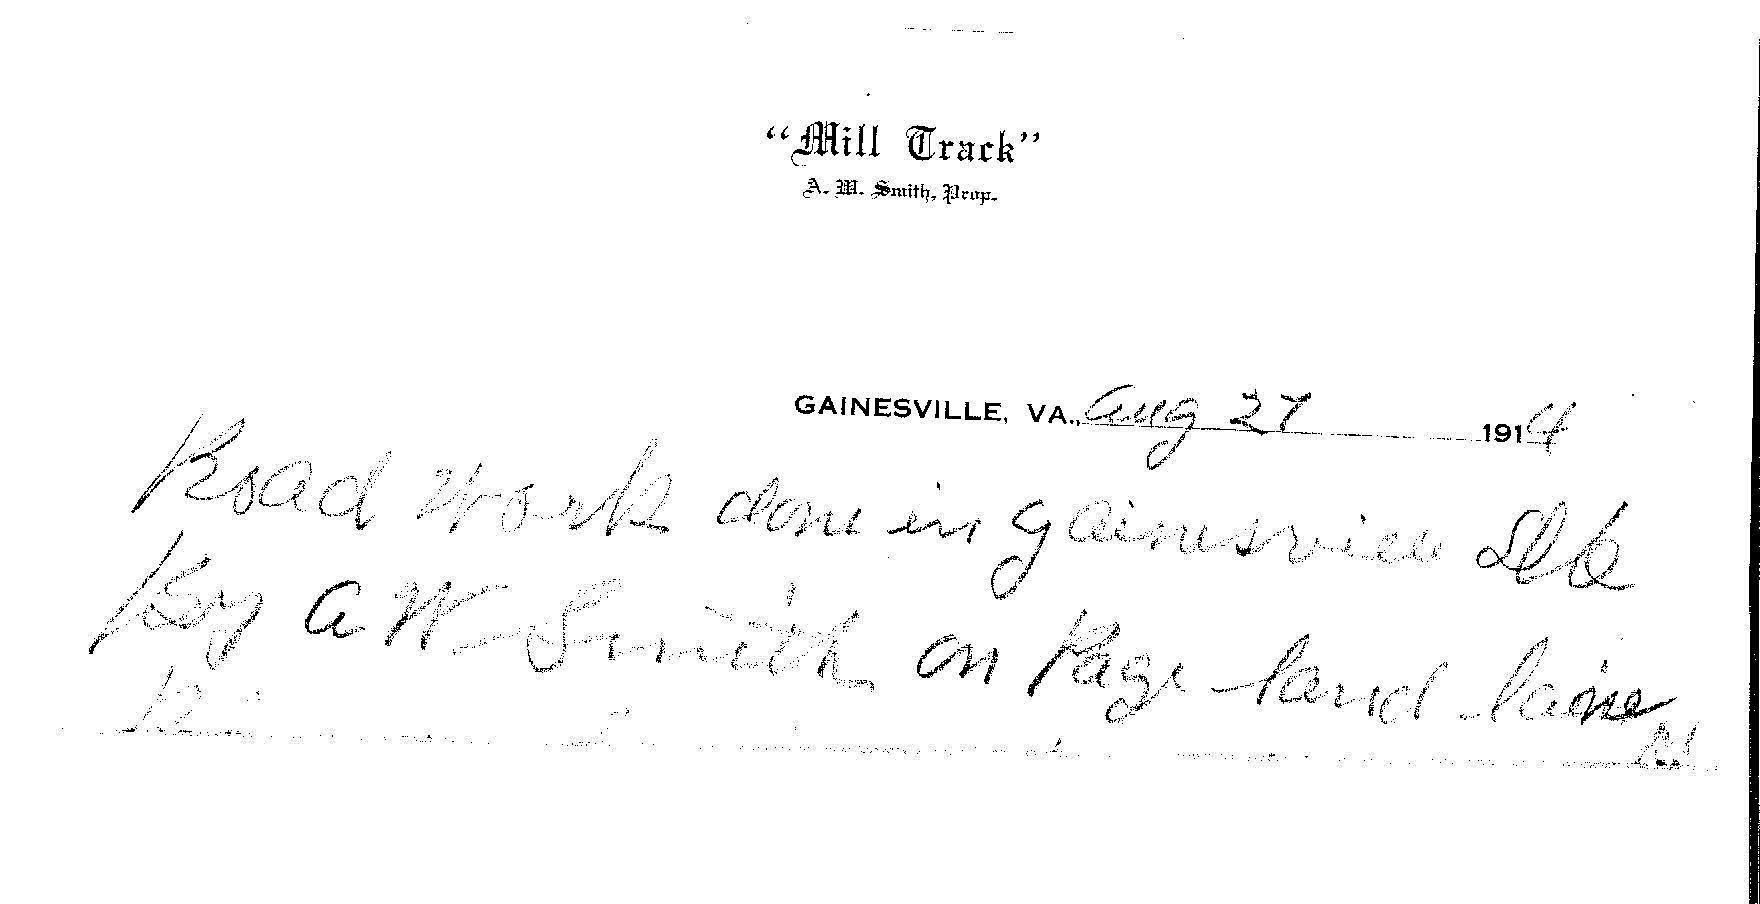 "Mill Track"
A. W. Smith, Prop.
GAINESVILLE, VA., Aug 27 1914
Road work done in Gainesville
By A W Smith on Page land laine